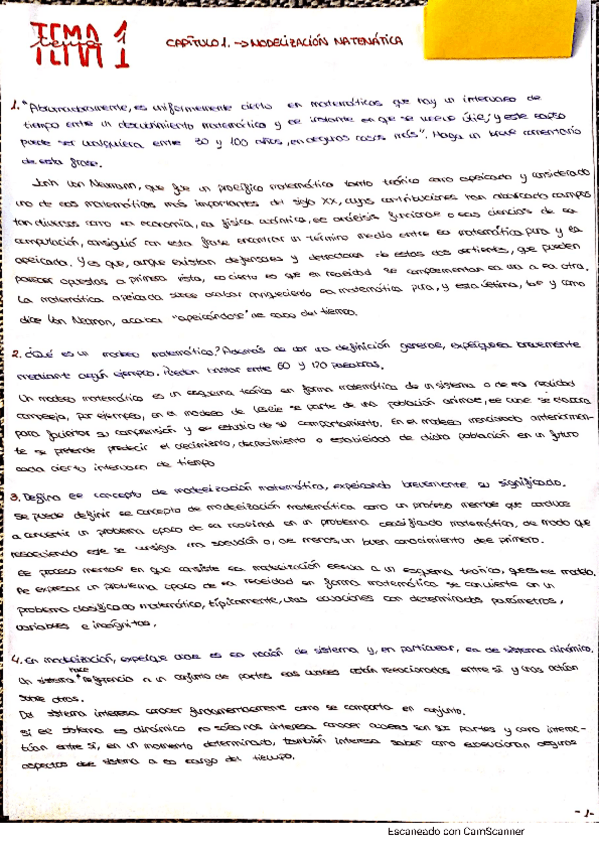 TEMA 1
CAPÍTULO 1. → MODELIZACIÓN MATEMÁTICA
1. "Abrumadoramente, es uniformemente cierto en matemáticas que hay un intervalo de
tiempo entre un descubrimiento matemático y el instante en que se vuelve útil; y este lapso
puede ser cualquiera entre 30 y 100 años, en algunos casos más". Haga un breve comentario
de esta frase.
John Von Neumann, que fue un prolífico matemático tanto teórico como aplicado y considerado
uno de los matemáticos más importantes del siglo XX, cuyas contribuciones han abarcado campos
tan diversos como la economía, la física cuántica, el análisis funcional o las ciencias de la
computación, consiguió con esta frase encontrar un término medio entre la matemática pura y la
aplicada. Y es que, aunque existan defensores y detractores de estas dos vertientes, que pueden
parecer opuestas a primera vista, lo cierto es que en realidad se complementan la una a la otra.
La matemática aplicada suele acabar enriqueciendo la matemática pura, y esta última, tal y como
dice Von Neuman, acaba "aplicándose" al cabo del tiempo.
2. ¿Qué es un modelo matemático? Además de dar una definición general, explíquela brevemente
mediante algún ejemplo. Pueden bastar entre 60 y 120 palabras.
Un modelo matemático es un esquema teórico en forma matemática de un sistema o de una realidad
compleja, por ejemplo, en el modelo de Leslie se parte de una población animal, el cual se elabora
para facilitar su comprensión y el estudio de su comportamiento. En el modelo mencionado anteriormen-
te se pretende predecir el crecimiento, decrecimiento o estabilidad de dicha población en un futuro
cada cierto intervalo de tiempo
3. Defina el concepto de modelización matemática, explicando brevemente su significado.
Se puede definir el concepto de modelización matemática como un proceso mental que conduce
a convertir un problema opaco de la realidad en un problema clasificado matemático, de modo que
resolviendo este se consiga una solución o, al menos, un buen conocimiento del primero.
El proceso mental en que consiste la modelización lleva a un esquema teórico, que es el modelo.
Al expresar un problema opaco de la realidad en forma matemática se convierte en un
problema clasificado matemático, típicamente, unas ecuaciones con determinados parámetros,
variables e incógnitas.
4. En modelización, explique cuál es la noción de sistema y, en particular, la de sistema dinámico.
Un sistema hace referencia a un conjunto de partes las cuales están relacionadas entre sí y unas actúan
sobre otras.
Del sistema interesa conocer fundamentalmente como se comporta en conjunto.
Si el sistema es dinámico no sólo nos interesa conocer cuáles son sus partes y como interac-
túan entre sí, en un momento determinado, también interesa saber como evolucionan algunos
aspectos del sistema a lo largo del tiempo.
-1-
Escaneado con CamScanner